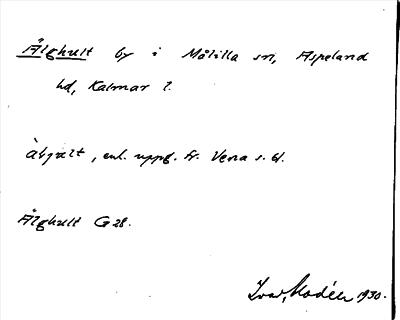 Älghult by i Målilla sn, Aspeland
hd, Kalmar l.
enl. uppg. fr. Vena s. d.
Älghult G 28.
Ivar Modéer 1930.